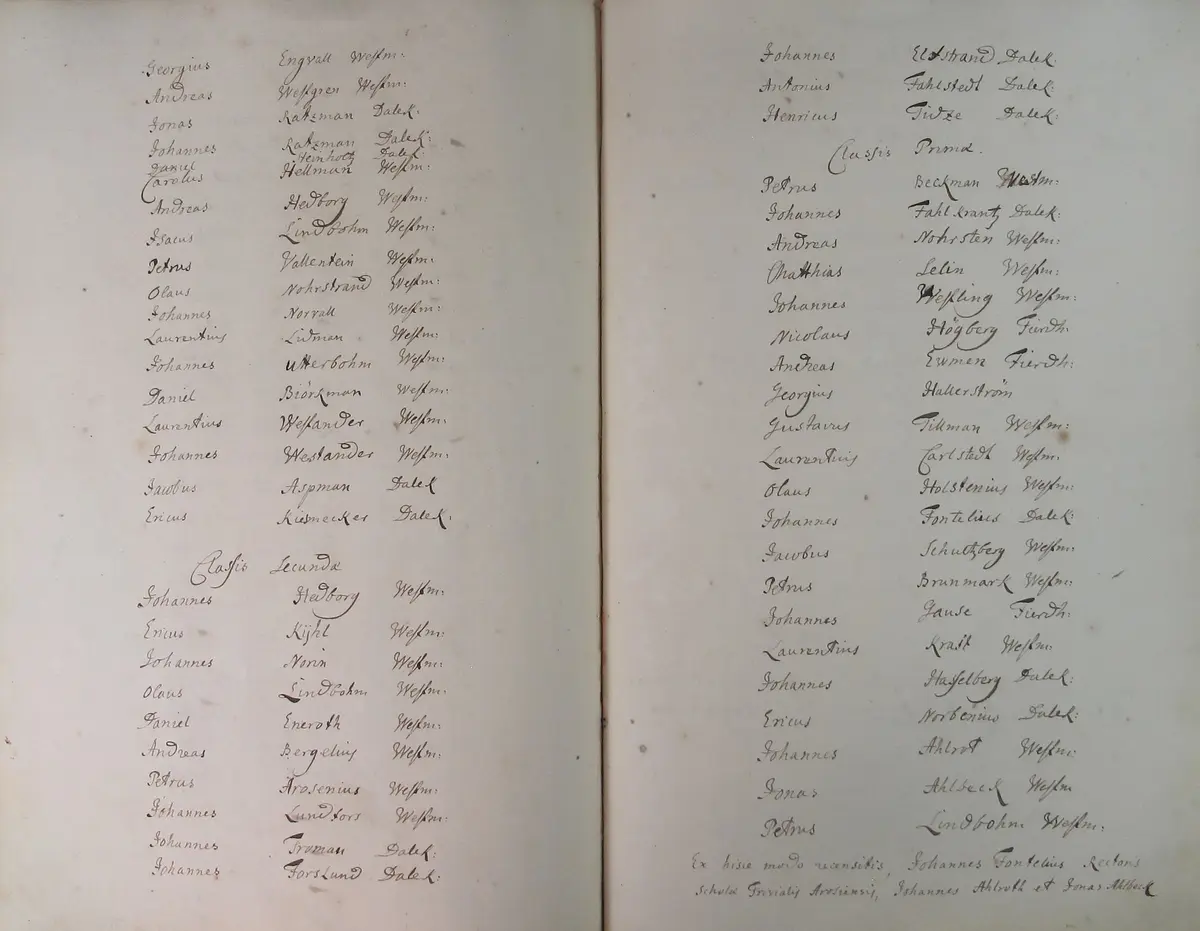 Georgius Engvall Westm:
Andreas Westgren Westm:
Jonas Ratzman Dalek:
Johannes Ratzman Dalek:
Daniel Heinholtz Dalek:
Carolus Hellman Westm:
Andreas Hedborg Westm:
Isacus Lindbohm Westm:
Petrus Vallentein Westm:
Olaus Nohrstrand Westm:
Johannes Norvall Westm:
Laurentius Lidman Westm:
Johannes Utterbohm Westm:
Daniel Biörkman Westm:
Laurentius Westander Westm:
Johannes Westander Westm:
Jacobus Aspman Dalek
Ericus Kismecker Dalek:
Classis Secunda
Johannes Hedborg Westm:
Ericus Kijhl Westm:
Johannes Norin Westm:
Olaus Lindbohm Westm:
Daniel Eneroth Westm:
Andreas Bergelius Westm:
Petrus Arosenius Westm:
Johannes Lundfors Westm:
Johannes Troman Dalek:
Johannes Forslund Dalek:
Johannes Elfstrand Dalek:
Antonius Fahlstedt Dalek:
Henricus Tidze Dalek:
Classis Prima.
Petrus Beckman Westm:
Johannes Fahlkrantz Dalek:
Andreas Nohrsten Westm:
Matthias Lelin Westm:
Johannes Westling Westm:
Nicolaus Högberg Fierdh:
Andreas Ewmen Fierdh:
Georgius Hallerström
Gustavus Tillman Westm:
Laurentius Carlstedt Westm:
Olaus Holstenius Westm:
Johannes Fontelius Dalek:
Jacobus Schultzberg Westm:
Petrus Brunmark Westm:
Johannes Gause Fierdh:
Laurentius Kraft Westm:
Johannes Hasselberg Dalek:
Ericus Norbenius Dalek:
Johannes Ahlrot Westm:
Jonas Ahlbeck Westm
Petrus Lindbohm Westm:
Ex hisce modo recensitis, Johannes Fontelius Rectoris
Scholæ Trivialis Arosiensis, Johannes Ahlroth et Jonas Ahlbeck